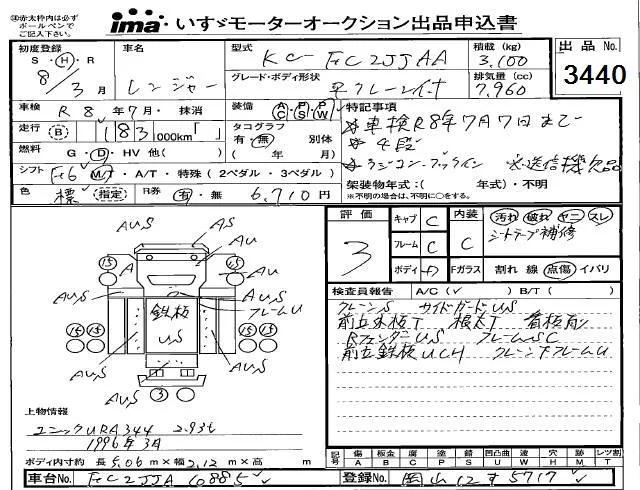 ㊟赤太枠内は必ず
ボールペンで
ご記入下さい。
ima いすゞモーターオークション出品申込書
初度登録 車名 型式 KC-FC2JJAA 積載(kg) 3,100 出品No. 3440
S・H・R 8/3月 レンジャー グレード・ボディ形状 平クレーン付 排気量(cc) 7,960
車検 R8年7月・抹消 装備 AC PS PW 特記事項
走行 B 183 000km「 」 タコグラフ 有・無 別体 ☆車検R8年7月7日まで
☆4段
燃料 G・D・HV 他( ) ☆ラジコン・フックイン ※送信機欠品
シフト F6 M/T・A/T・特殊(2ペダル・3ペダル) 架装物年式:( 年式)・不明
色 標 (指定) R券 有・無 6,710円 ※不明の場合は、不明に○をする。
評価 3 キャブ C 内装 C 汚れ 破れ ヤニ スレ
シートテープ補修
フレーム C
ボディ D Fガラス 割れ 線 点傷 イバリ
検査員報告 A/C(✓) B/T( )
クレーンS サイドガードUS
前立外板T 根太T 看板有り
RフェンダーUS フレームSC
前立鉄板UCH クレーン下フレームU
AUS
AU
AU
A
15
15
AUS
AUS
フレームU
鉄板
US
15 15
15 15
AUS
AUS
AUS
3
上物情報
ユニックURA344 2.93t
1996年3月
ボディ内寸約 長5.06m×幅2.12m×高 m
記号 傷 板金 腐 塗 錆 凹凸曲 波 穴 跡 レツ割
A B C P S U W H M T
車台No. FC2JJA 10885 登録No. 岡山 12す5717